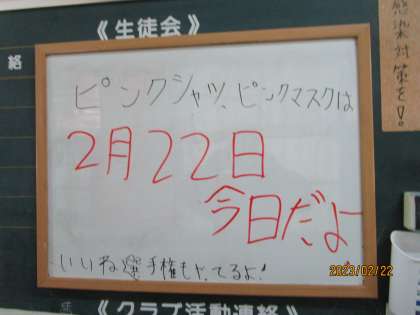 《生徒会》
絡
感染対策を!!
ピンクシャツ、ピンクマスクは
2月22日
今日だよ
いいね選手権もやってるよ!
2023/02/22
《クラブ活動連絡》